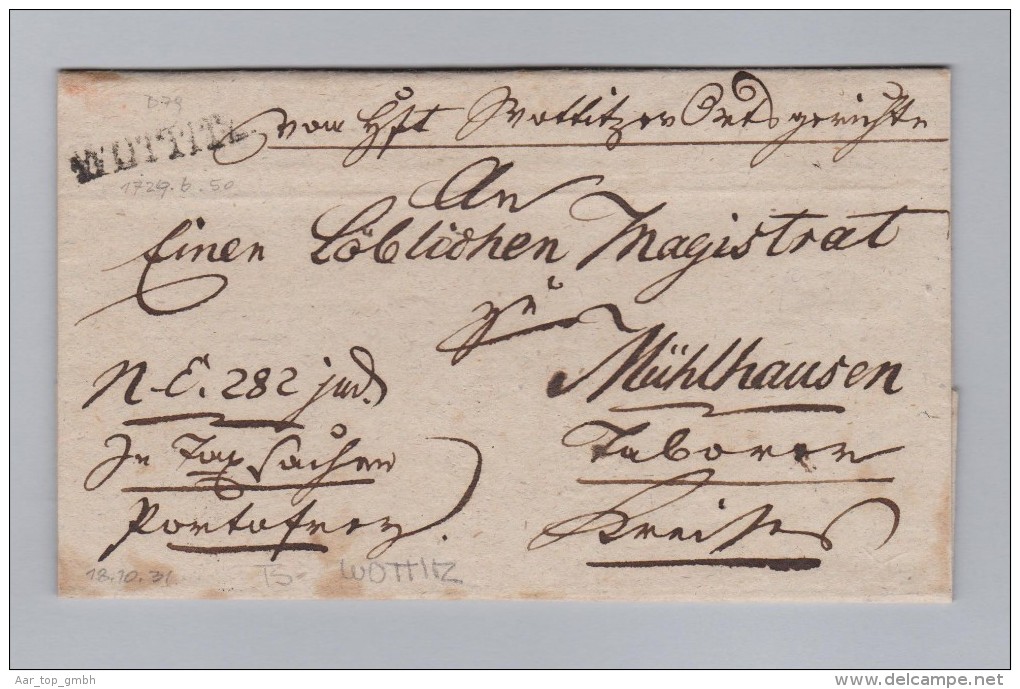 D79
WOTTITZ
von Hft Wottitzer Ortsgerichte
1729.b.50
An
Einen Löblichen Magistrat
zu
Mühlhausen
Taborer
Kreises
N-E. 282 jud.
In Tax Sachen
Portofrey
18.10.31
TS-
WOTTITZ
Aar_top_gmbh
www.delcampe.net